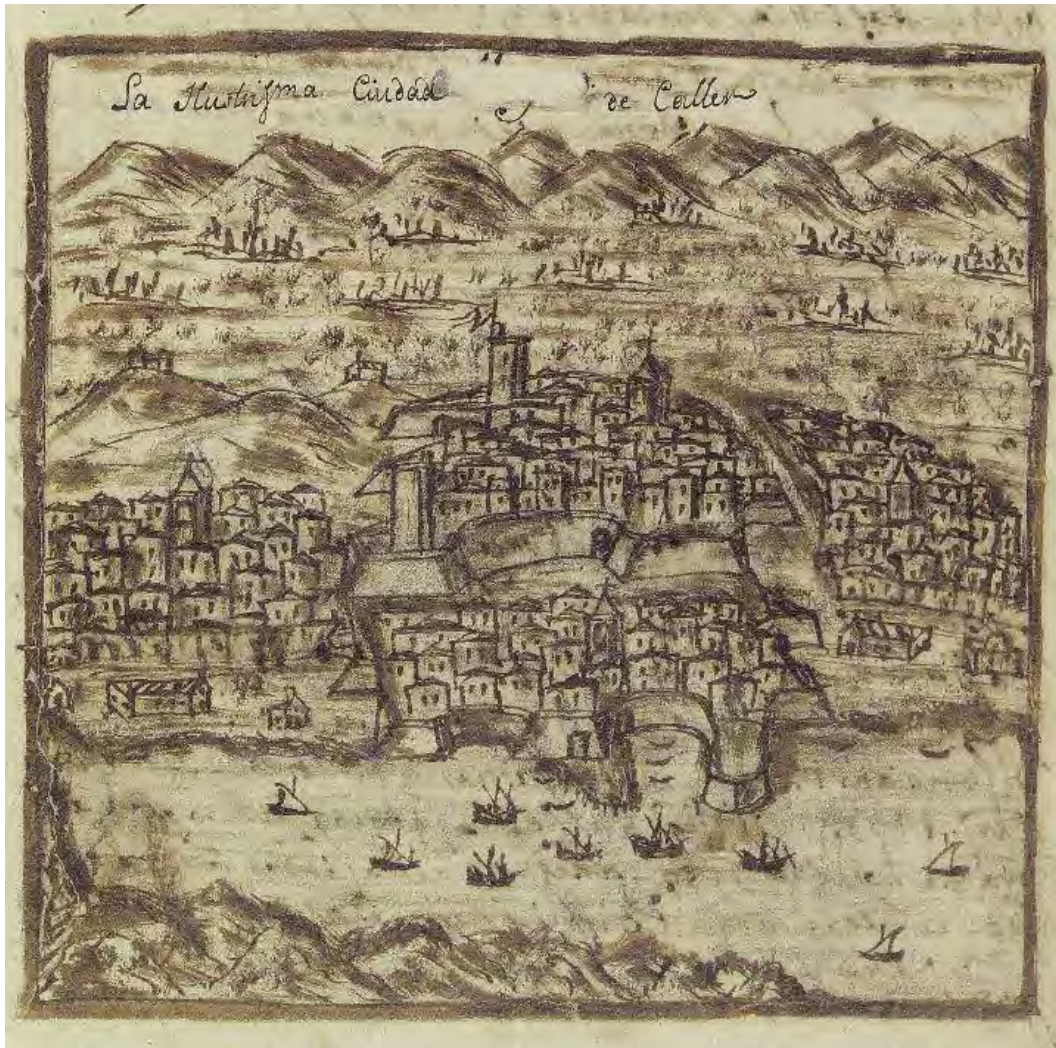 La Ilustrisma Ciudad de Caller